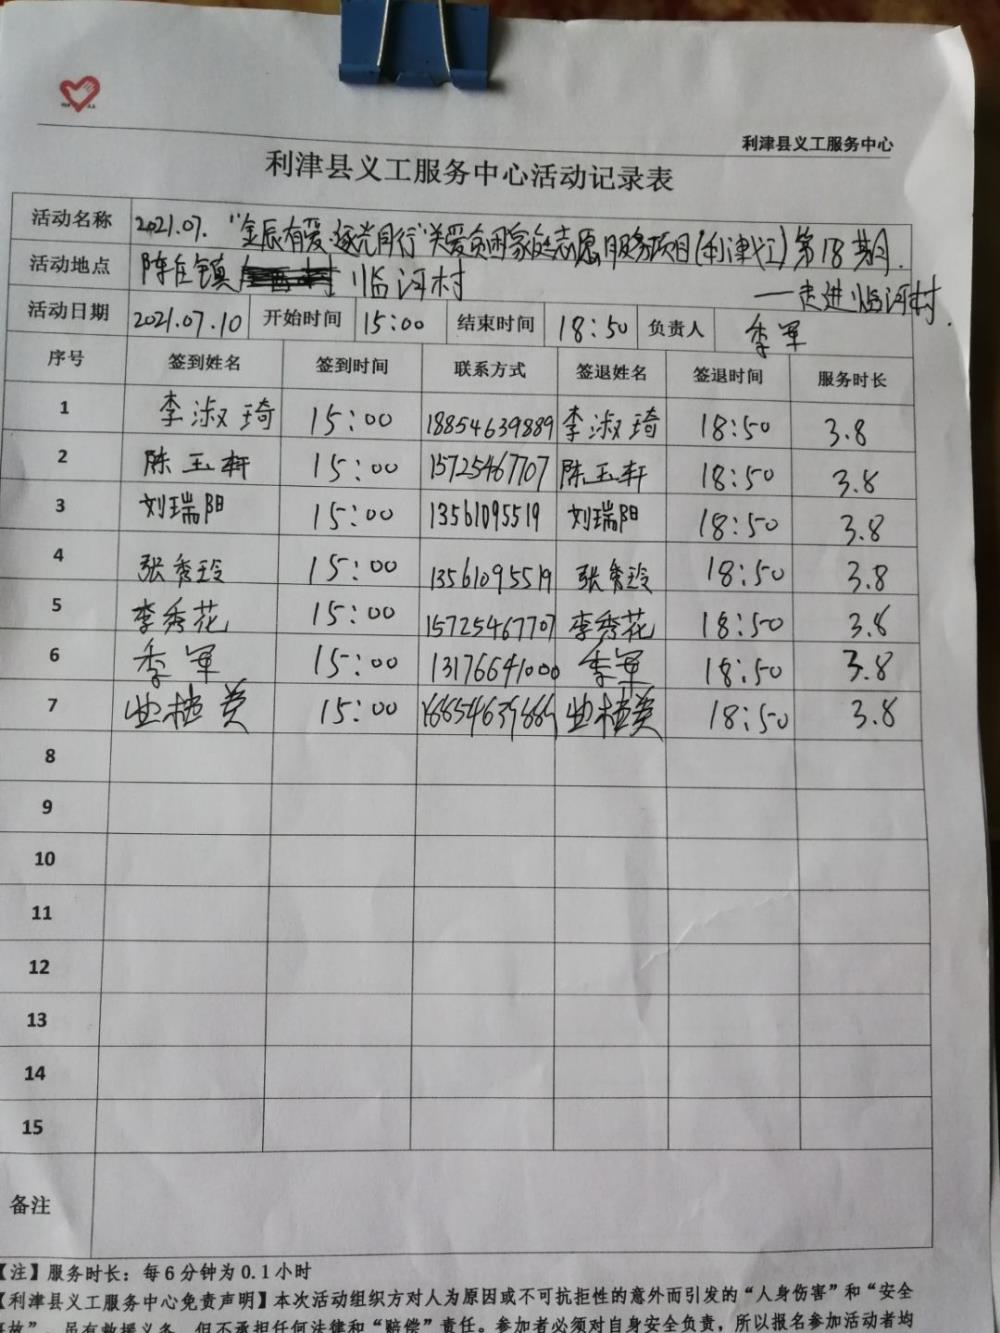 利津县义工服务中心
利津县义工服务中心活动记录表
活动名称 2021.07.“金辰有爱·逐光同行”关爱贫困家庭志愿服务项目(利津辖区)第18期
——走进临河村.
活动地点 陈庄镇 临河村
活动日期 2021.07.10 开始时间 15:00 结束时间 18:50 负责人 李军
序号 签到姓名 签到时间 联系方式 签退姓名 签退时间 服务时长
1 李淑琦 15:00 18854639889 李淑琦 18:50 3.8
2 陈玉轩 15:00 15725467707 陈玉轩 18:50 3.8
3 刘瑞阳 15:00 13561095519 刘瑞阳 18:50 3.8
4 张秀玲 15:00 13561095519 张秀玲 18:50 3.8
5 李秀花 15:00 15725467707 李秀花 18:50 3.8
6 李军 15:00 13176641000 李军 18:50 3.8
7 15:00 18:50 3.8
8
9
10
11
12
13
14
15
备注
【注】服务时长：每6分钟为0.1小时
【利津县义工服务中心免责声明】本次活动组织方对人为原因或不可抗拒性的意外而引发的“人身伤害”和“安全
事故”，虽有救援义务，但不承担任何法律和“赔偿”责任。参加者必须对自身安全负责，所以报名参加活动者均